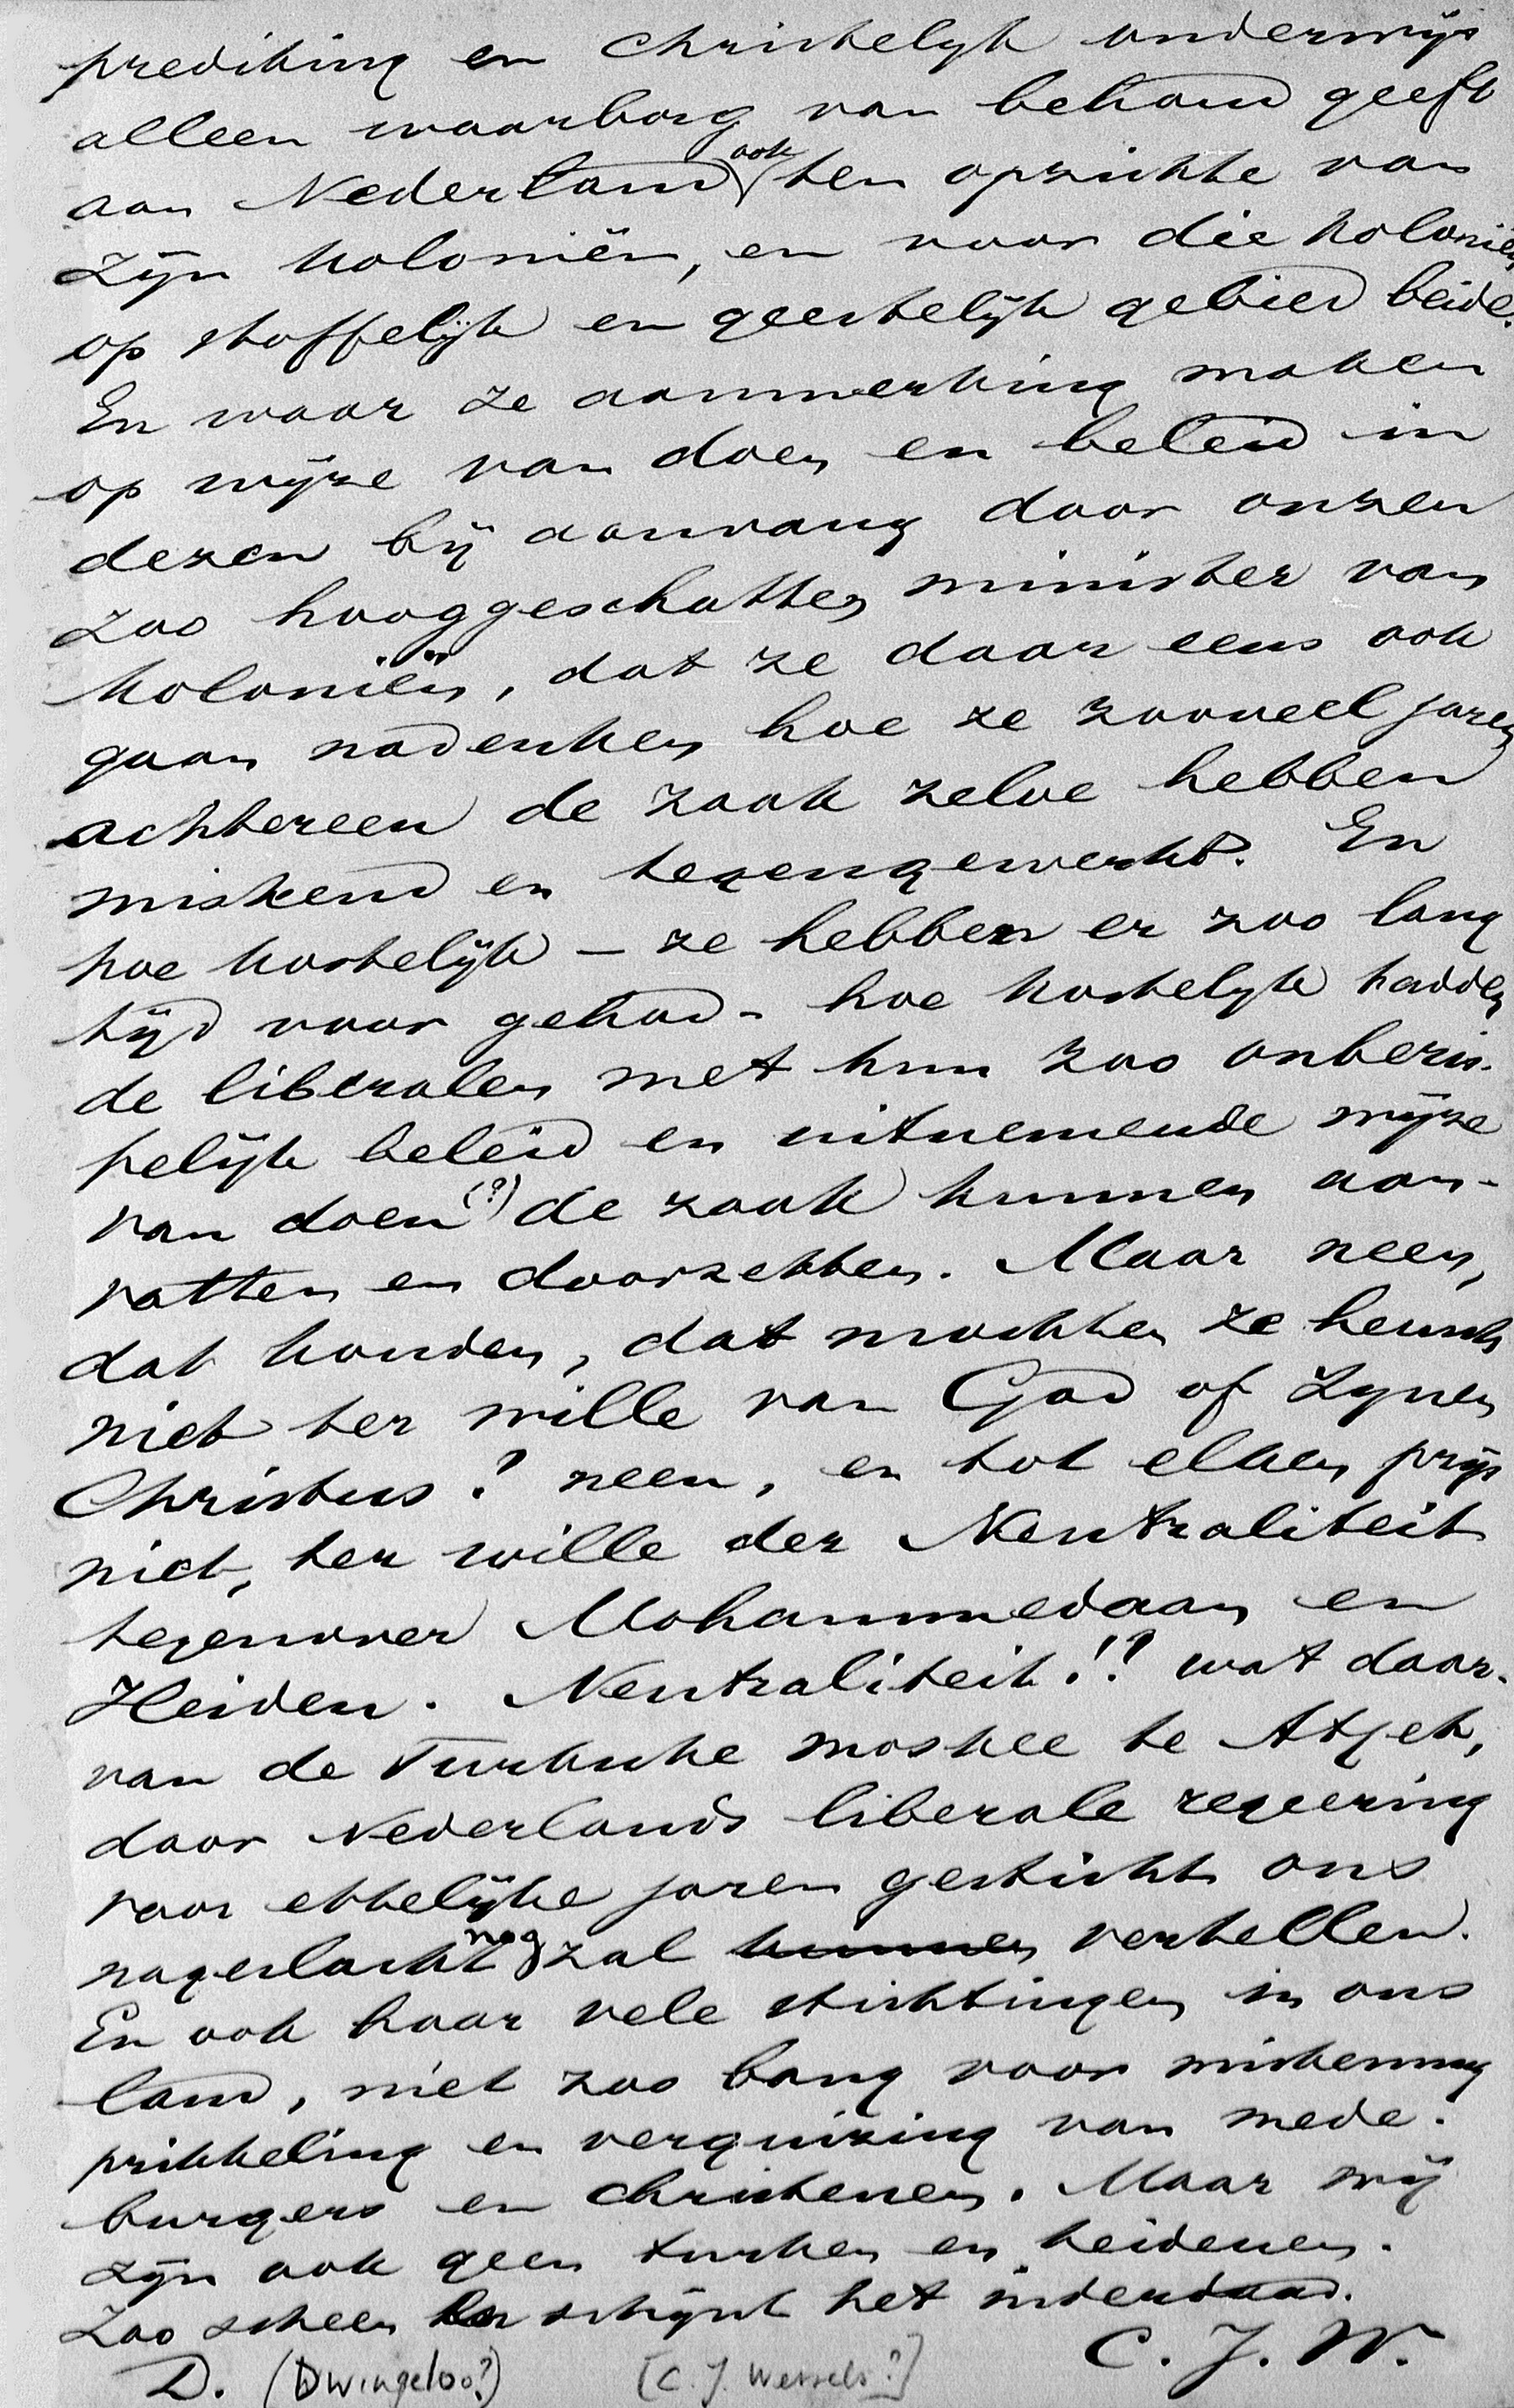 prediking en Christelyk onderwijs
alleen waarborg van behoud geeft
aan Nederland ook ten opzichte van
zijn koloniën, en voor die koloniën
op stoffelijk en geestelijk gebied beide.
En waar ze aanmerking maken
op wijze van doen en beleid in
dezen bij aanvang door onzen
zoo hooggeschatten minister van
koloniën, dat ze daar eens ook
gaan nadenken hoe ze zooveel jaren
achtereen de zaak zelve hebben
miskend en tegengewerkt. En
hoe kostelijk – ze hebben er zoo lang
tijd voor gehad – hoe kostelyk hadden
de liberalen met hun zoo onberis-
pelijk beleid en uitnemende wijze
van doen (?) de zaak kunnen aan-
vatten en doorzetten. Maar neen,
dat konden, dat mochten ze heusch
niet ter wille van God of Zynen
Christus? neen, en tot elken prijs
niet, ter wille der Neutraliteit
tegenover Mohammedaan en
Heiden. Neutraliteit!? wat daar-
van de Turksche moskee te Atjeh,
door Nederlands liberale regeering
voor ettelijke jaren gesticht ons
nageslacht nog zal kunnen vertellen.
En ook haar vele stichtingen in ons
land, niet zoo bang voor miskenning
prikkeling en verguizing van mede-
burgers en christenen. Maar wij
zijn ook geen turken en heidenen.
Zoo scheen en schijnt het inderdaad.
C. J. W.
D. (Dwingeloo?) [C. J. Wessels?]